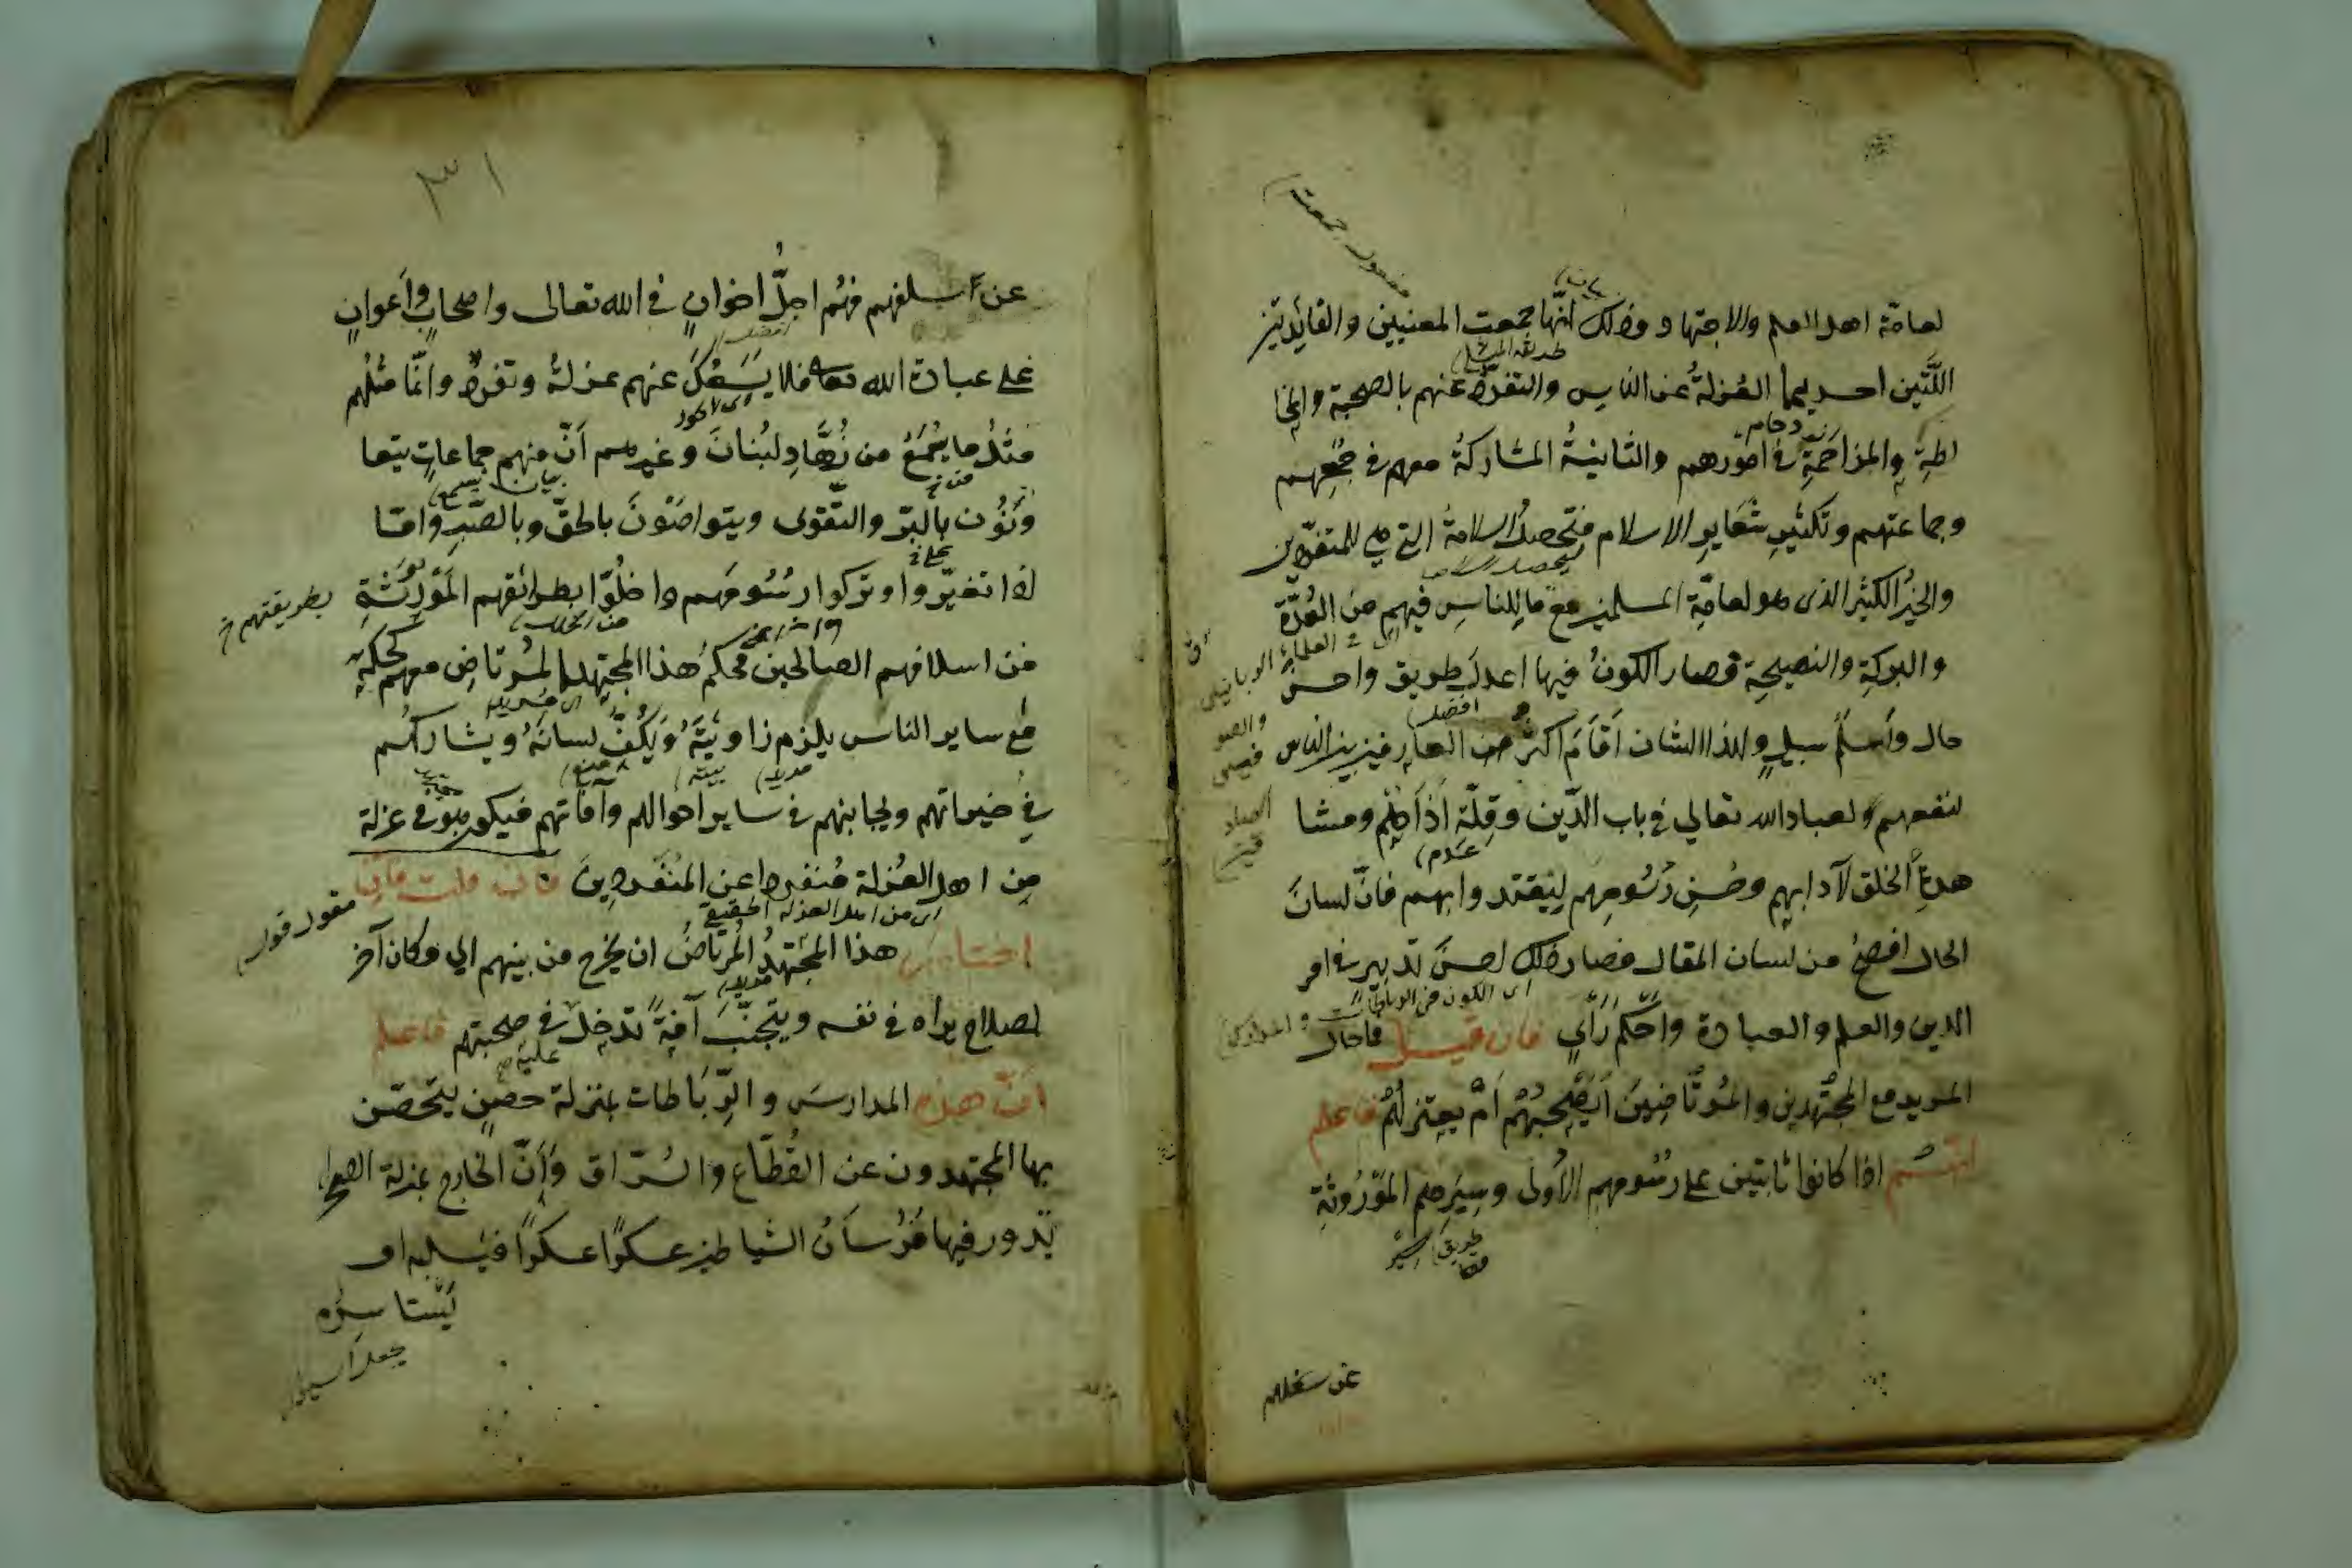 لعامة اهل العلم والاجتهاد وذلك انها جمعت المعنيين والفائدتين
اللتين احديهما العزلة عن الناس والتفرد عنهم بالصحبة والمخا
لطة والمزاحمة في امورهم والثانية المشاركة معهم في جمعهم
وجماعتهم وتكثير شعاير الاسلام فتحصل السلامة التي هي للمتفردين
والخير الكثير الذى هو لعامة المسلمين مع ما للناس فيهم من القدوة
والبركة والنصيحة فصار الكون فيها اعدل طريق واحسن
حال وأسلم سبيل ولهذا الشان أقام اكثر من العارفين بين الناس
لنفعهم ولعباد الله تعالي في باب الدين وقلة أذاهم ومشا
هدة الخلق لآدابهم وحسن رسومهم ليقتدوا بهم فان لسان
الحال افصح من لسان المقال فصار ذلك احسن تدبير في امر
الدين والعلم والعبادة واحكم رأي فان قيل فما حال
المريد مع المجتهدين والمرتاضين أيصحبهم ام يعتزلهم فاعلم
انهم اذا كانوا ثابتين على رسومهم الأولى وسيرهم الموروثة
عن سلفهم
٣١
عن أسلفهم فهم اجل اخوان في الله تعالى واصحاب واعوان
على عبادة الله تعالى فلا يسعك عنهم عزلة وتفرد وانما مثلهم
مثل ما يجمع من زهاد لبنان وغيرهم أن منهم جماعات يتعا
ونون بالبر والتقوى ويتواصون بالحق وبالصبر واما
اذا تغيروا وتركوا رسومهم واخلوا بطرائقهم المورثة
بطريقتهم خ
من اسلافهم الصالحين فحكم هذا المجتهد المرتاض معهم كحكمه
مع ساير الناس يلزم زاويته ويكف لسانه ويشاركهم
في خيراتهم ويجانبهم في ساير احوالهم وآفاتهم فيكون هو في عزلة
من اهل العزلة منفردا عن المنفردين فان قلت فان
اى من اهل العزلة الحقيقي
اختار هذا المجتهد المرتاض ان يخرج من بينهم الي مكان آخر
لصلاح يراه في نفسه ويتجنب آفة تدخل في صحبتهم فاعلم
ان هذه المدارس والرباطات بمنزلة حصن يتحصن
بها المجتهدون عن القطاع والسراق وأن الخارج بمنزلة الصحرا
تدور فيها فرسان الشياطين عسكرا عسكرا فتسلبه او
تستاسره